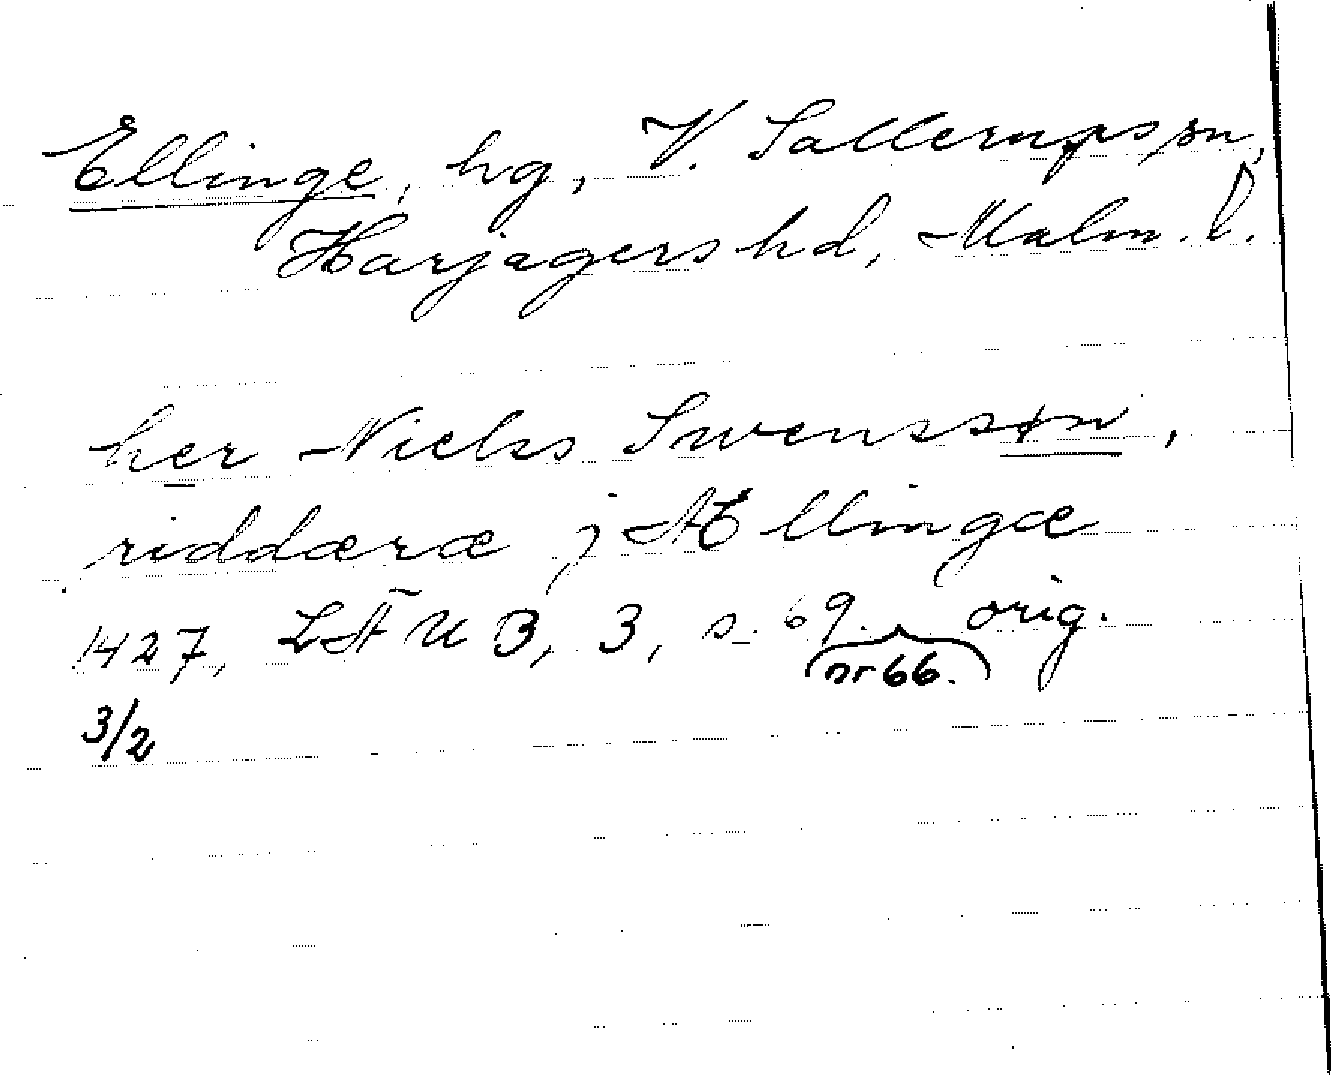 Ellinge, hg, V. Sallerups sn,
Harjagers hd, Malm. l.
her Niels Swenssøn,
riddæræ j Ællingæ
1427, LÄUB, 3, s. 69. orig.
nr 66.
3/2